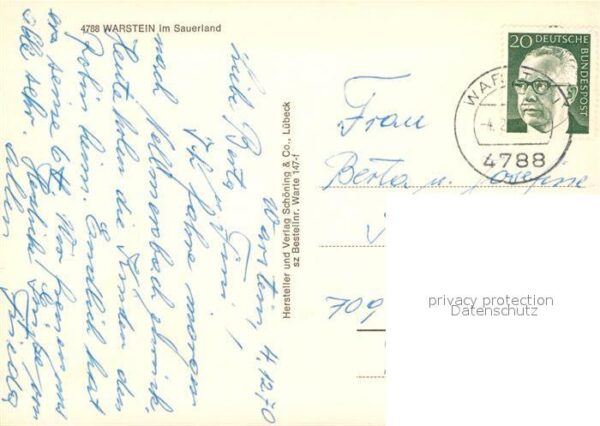 4788 WARSTEIN im Sauerland
Warstein, 4.12.70
Liebe Berta,
Ich fahre morgen
nach
heute holen die Kinder den
Robin heim. Endlich hat
era seine 6 Wir freuen uns
alle sehr. Herzliche Grüße von
allen Frieda
Hersteller und Verlag Schöning & Co., Lübeck
sz Bestellnr. Warte 147-f
20 DEUTSCHE
BUNDESPOST
4788
Frau
Berta u. Josefine
709
privacy protection
Datenschutz